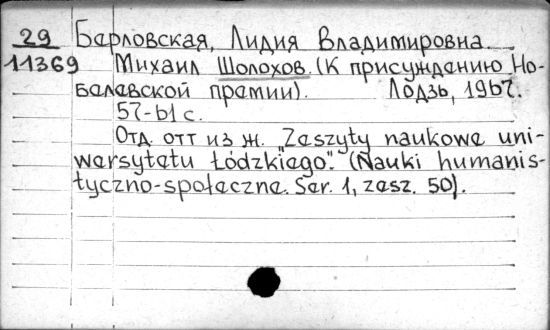 29 Барловская, Лидия Владимировна
11369 Михаил Шолохов. (К присуждению Но-
белевской премии). Лодзь, 1967.
57-61 с.
Отд. отт из ж. "Zeszyty naukowe uni-
wersytetu Łódzkiego." (Nauki humanis-
tyczno-społeczne. Ser. 1, zesz. 50).